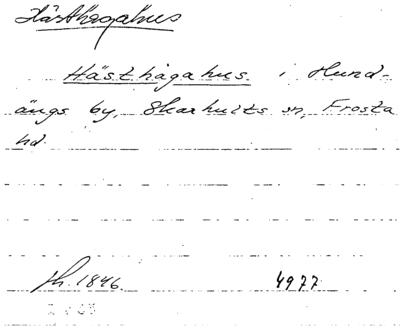 Hästhagahus
Hästhagahus i Hund-
ängs by, Skarhults sn, Frosta
hd.
fh. 1846. 4977